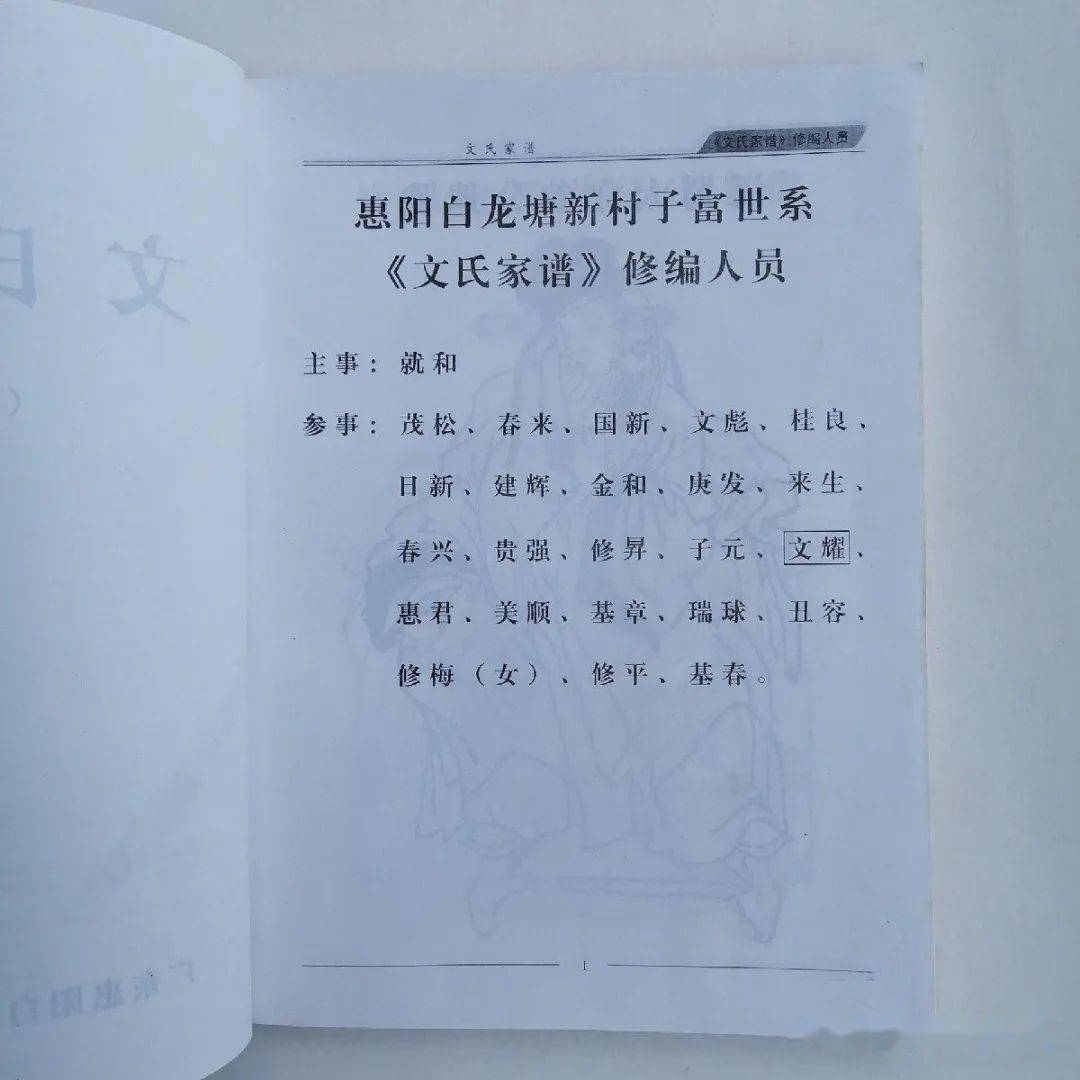 文氏家谱
《文氏家谱》修编人员
惠阳白龙塘新村子富世系
《文氏家谱》修编人员
主事：就和
参事：茂松、春来、国新、文彪、桂良、
日新、建辉、金和、庚发、来生、
春兴、贵强、修昇、子元、文耀、
惠君、美顺、基章、瑞球、丑容、
修梅（女）、修平、基春。
1
文
广东惠阳白